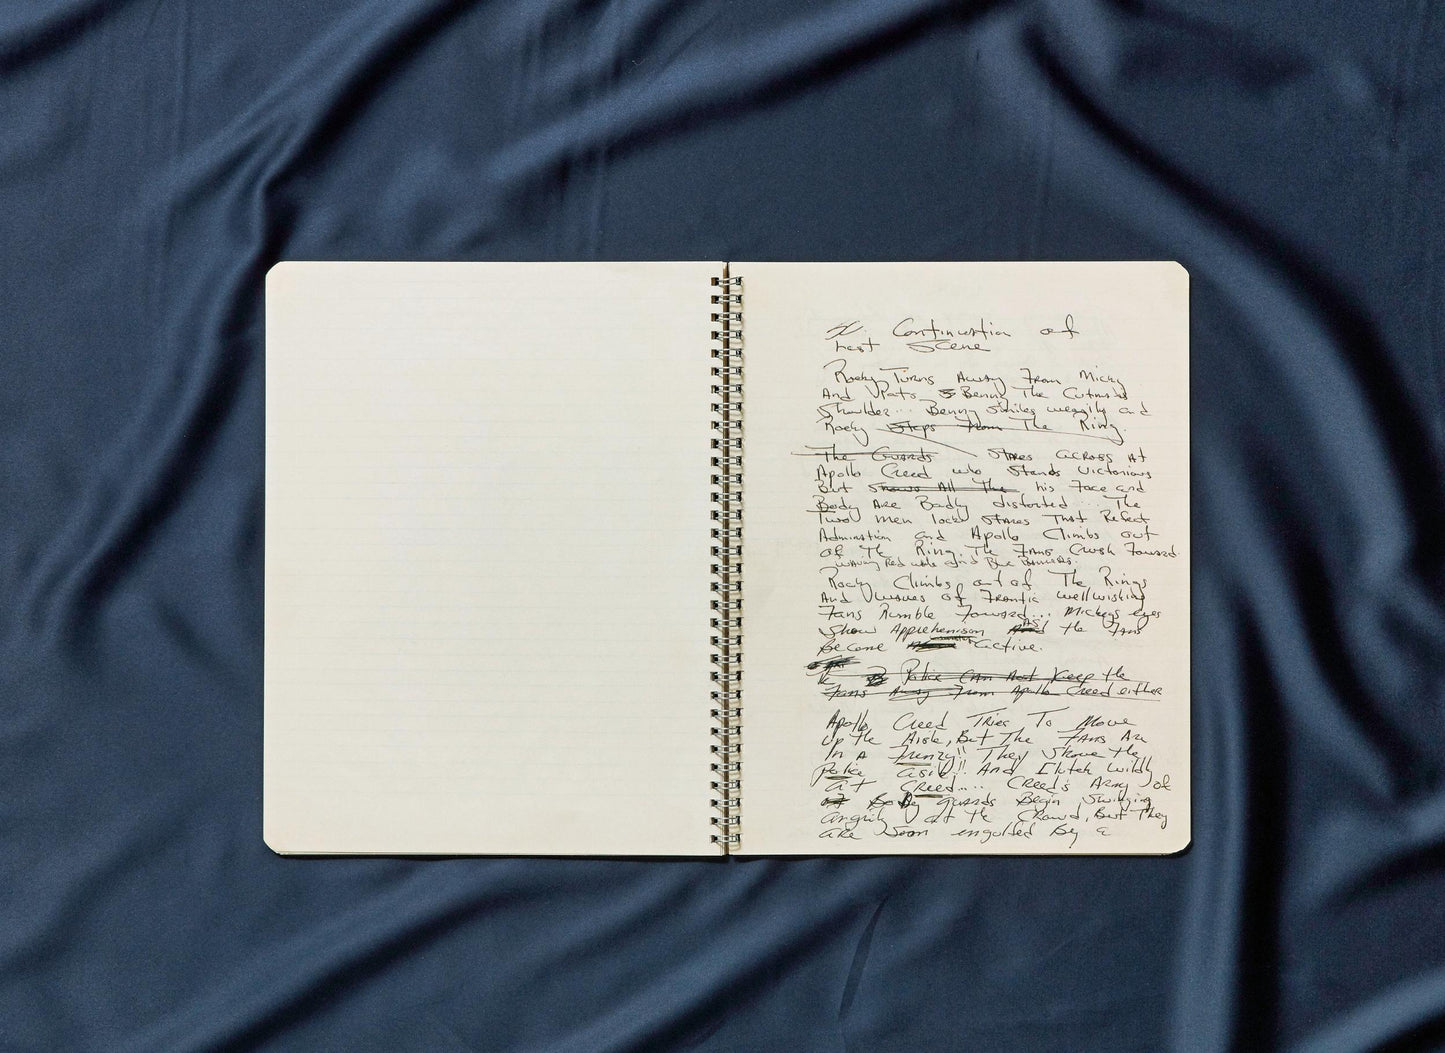 Continuation of
Last Scene
Rocky Turns Away From Micky
And Pats Benny The Cutmans
Shoulder... Benny Smiles wearily and
Rocky Steps From The Ring.
The Guards Stares Across At
Apollo Creed who Stands Victorious
But Shows All The his Face and
Body Are Badly distorted... The
Two men lock Stares That Reflect
Admiration and Apollo Climbs out
of The Ring. The Fans Crush Forward
waving Red white and Blue Banners.
Rocky Climbs out of The Rings
And waves of Frantic wellwishing
Fans Rumble Forward... Mickeys eyes
Show Apprehenison As the Fans
Become active.
Police Can Not Keep the
Fans Away From Apollo Creed either
Apollo Creed Tries To Move
Up the Aisle, But The Fans Are
In A Frenzy!! They Shove the
Police aside!! And Clutch wildly
at Creed.... Creed's Army of
Body guards Begin Swinging
angrily at the Crowd, But They
are Soon engulfed By a